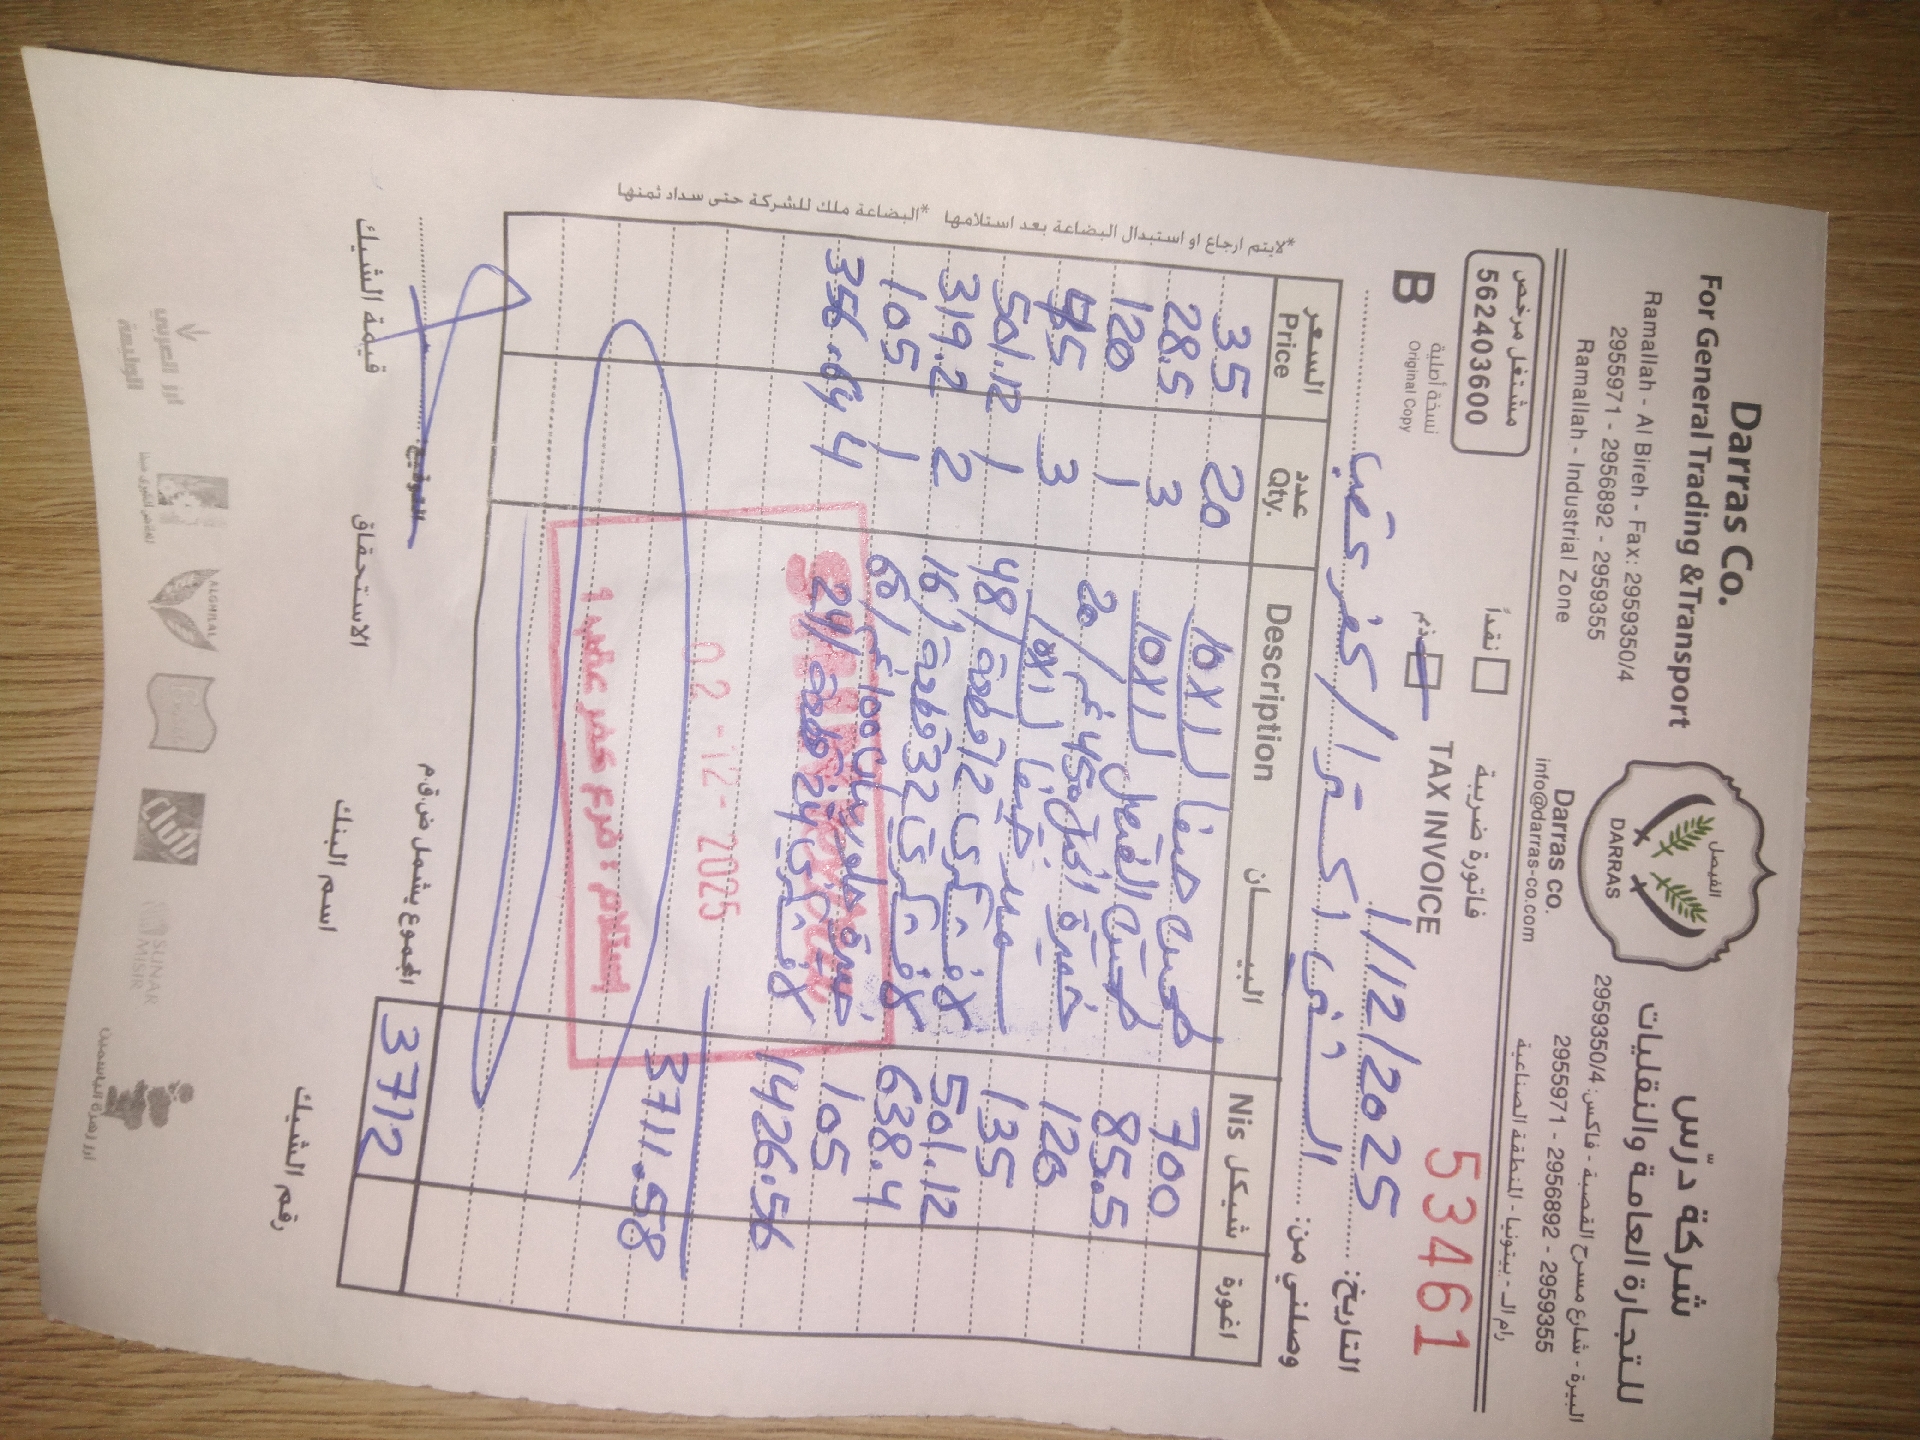 Darras Co.
For General Trading & Transport
Ramallah - Al Bireh - Fax: 2959350/4
2955971 - 2956892 - 2959355
Ramallah - Industrial Zone
الفيصل
DARRAS
Darras co.
info@darras-co.com
شركة درّس
للتجارة العامة والنقليات
البيرة - شارع مسرح القصبة - فاكس: 2959350/4
2955971 - 2956892 - 2959355
رام الله - بيتونيا - المنطقة الصناعية
مشتغل مرخص
562403600
نقداً
ذمم
فاتورة ضريبة
TAX INVOICE
53461
B
نسخة أصلية
Original Copy
التاريخ: 1/12/2025
وصلني من: السنى اكسترا / كفر عقب
السعر Price عدد Qty. Description البيـــان شيكل Nis اغورة
35 20 طحين صنفا 1X10 700
28.5 3 طحين الفيصل 1X10 85.5
120 1 خميرة 450غم / 20 120
45 3 سميد 1X10 135
501.12 1 72 قطعة / 48 501.12
319.2 2 32 قطعة / 16 638.4
105 1 100غم / 60 105
356.64 4 24 قطعة / 24 1426.56
3711.58
02-12-2025
إستلام : فرع كفر عقب 1
المجموع يشمل ض.ق.م 3712
*لايتم ارجاع او استبدال البضاعة بعد استلامها *البضاعة ملك للشركة حتى سداد ثمنها
التوقيع
قيمة الشيك الاستحقاق اسم البنك رقم الشيك
ALGHILAL
SUNAR MISIR
أرز زهرة الياسمين